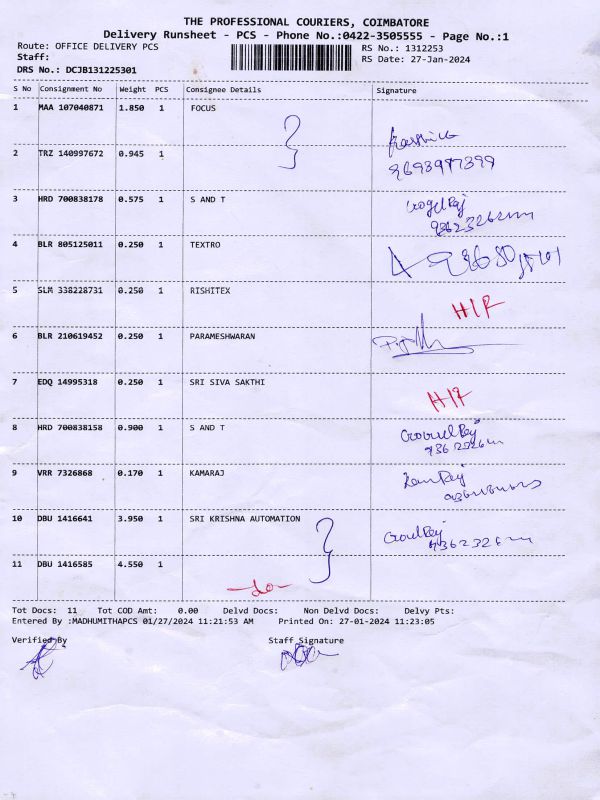 THE PROFESSIONAL COURIERS, COIMBATORE
Delivery Runsheet - PCS - Phone No.:0422-3505555 - Page No.:1
Route: OFFICE DELIVERY PCS
RS No.: 1312253
Staff:
RS Date: 27-Jan-2024
DRS No.: DCJB131225301
S No Consignment No Weight PCS Consignee Details Signature
1 MAA 107040871 1.850 1 FOCUS
2 TRZ 140997672 0.945 1
3 HRD 700838178 0.575 1 S AND T
4 BLR 805125011 0.250 1 TEXTRO
5 SLM 338228731 0.250 1 RISHITEX
6 BLR 210619452 0.250 1 PARAMESHWARAN
7 EDQ 14995318 0.250 1 SRI SIVA SAKTHI
8 HRD 700838158 0.900 1 S AND T
9 VRR 7326868 0.170 1 KAMARAJ
10 DBU 1416641 3.950 1 SRI KRISHNA AUTOMATION
11 DBU 1416585 4.550 1
-do-
Tot Docs: 11 Tot COD Amt: 0.00 Delvd Docs: Non Delvd Docs: Delvy Pts:
Entered By :MADHUMITHAPCS 01/27/2024 11:21:53 AM Printed On: 27-01-2024 11:23:05
Verified By Staff Signature